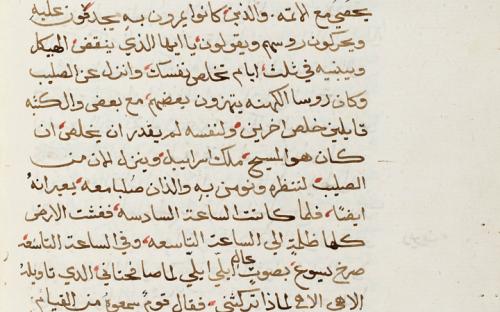 يحصي مع الاثمه. والذين كانوا يمرون به يجدفون عليه
ويحركون روسهم ويقولون يا ايها الذي ينقض الهيكل
ويبنيه في ثلث ايام تخلص نفسك وانزل عن الصليب
وكان روسا الكهنه يتهزون بعضهم مع بعض والكتبه
قايلين خلص اخرين ولنفسه لم يقدر ان يخلص ان
كان هو المسيح ملك اسراييل وينزل الان من
الصليب لننظره ونومن به والذان صلبا معه يعيرانه
ايضًا فلما كانت الساعه السادسه فغشت الارض
كلها ظلمة الي الساعه التاسعه وفي الساعه التاسعه
صرخ يسوع بصوت عالٍ ايلي ايلي لما صافختاني الذي تاويله
الاهي الاهي لماذا تركتني فقال قوم سمعوه من القيام